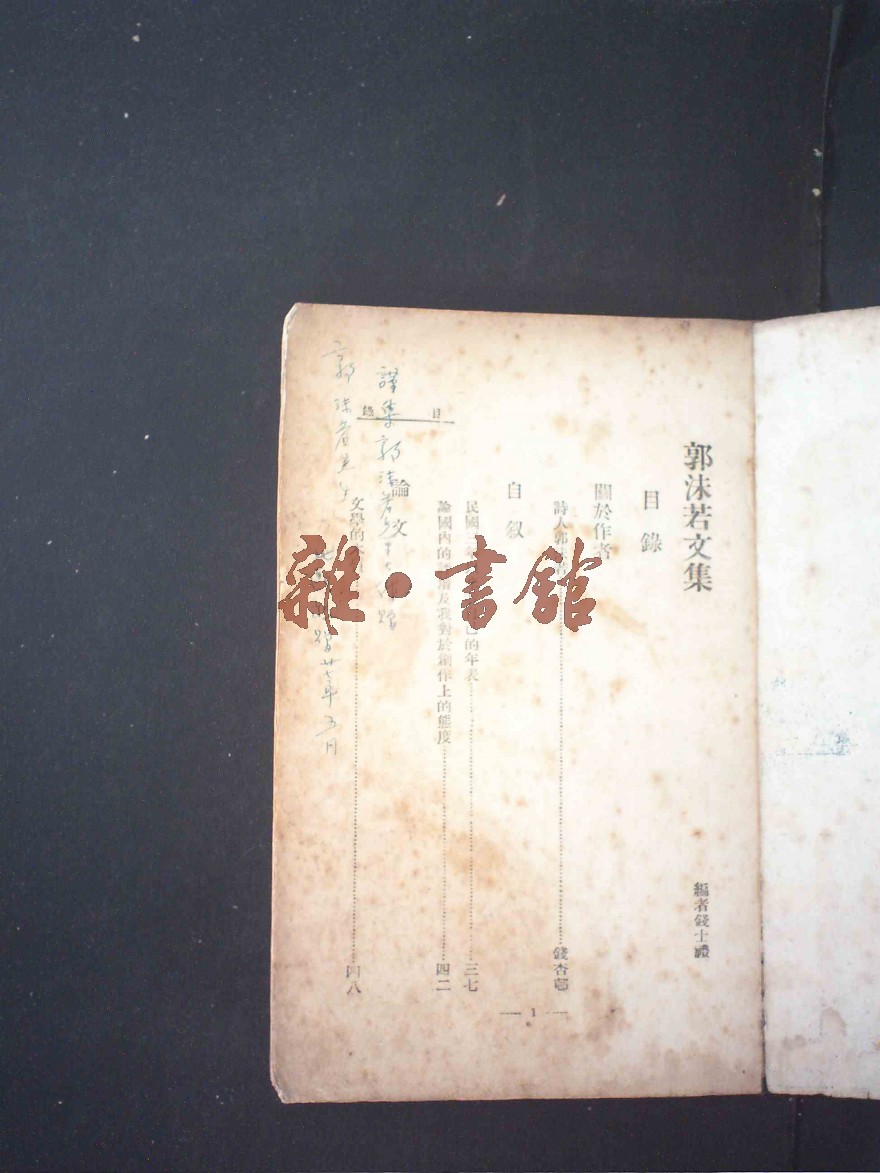 郭沫若文集
編者錢士禮
目錄
關於作者
詩人郭沫若 錢杏邨
自叙
民國三 的年表 三七
論國內的 及我對於創作上的態度 四二
論文
文學的 四八
目錄
— 1 —
謹集郭沫若先生 贈
郭沫若先生 贈廿七年五月
雜·書館